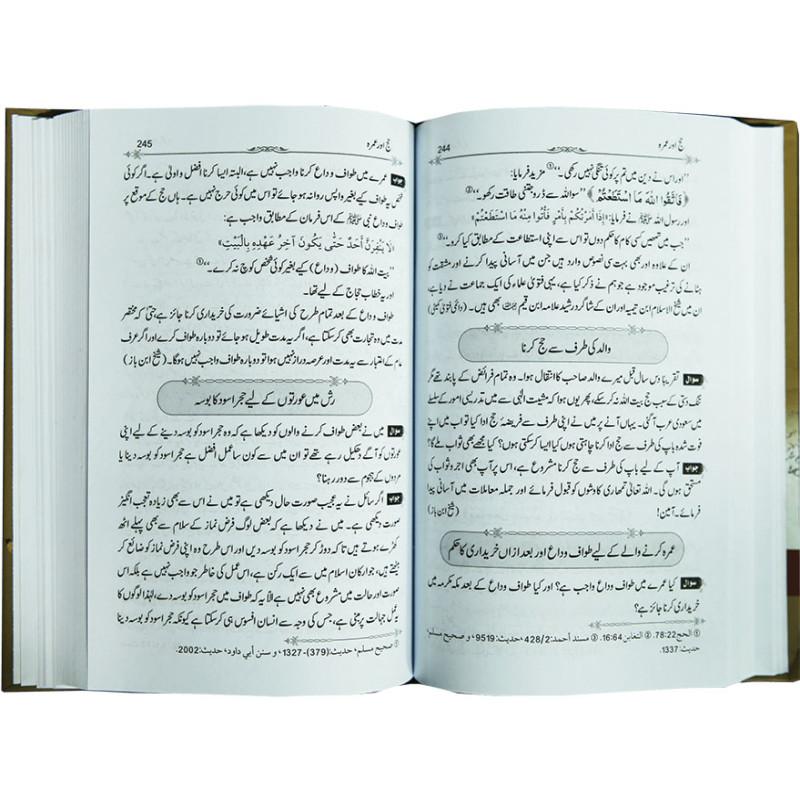 حج اور عمرہ 244
”اور اس نے دین میں تم پر کوئی تنگی نہیں رکھی۔“① مزید فرمایا:
﴿فَاتَّقُوا اللّٰهَ مَا اسْتَطَعْتُمْ﴾ ”سو اللہ سے ڈرو جتنی طاقت رکھو۔“②
اور رسول اللہ ﷺ نے فرمایا: «إِذَا أَمَرْتُكُمْ بِأَمْرٍ فَأْتُوا مِنْهُ مَا اسْتَطَعْتُمْ»
”جب میں تمھیں کسی کام کا حکم دوں تو اس سے اپنی استطاعت کے مطابق کیا کرو۔“③
ان کے علاوہ اور بھی بہت سی نصوص وارد ہیں جن میں آسانی پیدا کرنے اور مشقت کو
ہٹانے کی ترغیب موجود ہے جو ہم نے ذکر کیا ہے، یہی فتویٰ علماء کی ایک جماعت نے دیا ہے،
ان میں شیخ الاسلام ابن تیمیہ اور ان کے شاگرد رشید علامہ ابن قیم بھی ہیں۔ (دائمی فتویٰ کمیٹی)
والد کی طرف سے حج کرنا
سوال تقریباً دس سال قبل میرے والد صاحب کا انتقال ہوا۔ وہ تمام فرائض کے پابند تھے مگر
تنگ دستی کے سبب حج بیت اللہ نہ کر سکے، پھر یوں ہوا کہ مشیت الٰہی سے میں تدریسی امور کے سلسلے
میں سعودی عرب آ گئی۔ یہاں آنے پر میں نے اپنی طرف سے فریضۂ حج ادا کیا تو اب میں اپنے
فوت شدہ باپ کی طرف سے حج ادا کرنا چاہتی ہوں کیا ایسا کر سکتی ہوں؟ کیا مجھے بھی ثواب ملے گا؟
جواب آپ کے لیے باپ کی طرف سے حج کرنا مشروع ہے، اس پر آپ بھی اجر و ثواب کی
مستحق ہوں گی۔ اللہ تعالیٰ تمھاری کاوشوں کو قبول فرمائے اور جملہ معاملات میں آسانی پیدا
فرمائے۔ آمین! (شیخ ابن باز)
عمرہ کرنے والے کے لیے طواف وداع اور بعد ازاں خریداری کا حکم
سوال کیا عمرے میں طواف وداع واجب ہے؟ اور کیا طواف وداع کے بعد مکہ مکرمہ میں
خریداری کرنا جائز ہے؟
① الحج 78:22. ② التغابن 16:64. ③ مسند أحمد: 428/2، حدیث: 9519، و صحیح مسلم،
حدیث: 1337.
حج اور عمرہ 245
جواب عمرے میں طواف وداع کرنا واجب نہیں ہے، البتہ ایسا کرنا افضل و اولیٰ ہے۔ اگر کوئی
شخص یہ طواف کیے بغیر واپس روانہ ہو جائے تو اس میں کوئی حرج نہیں ہے۔ ہاں حج کے موقع پر
طواف وداع نبی ﷺ کے اس فرمان کے مطابق واجب ہے:
«لَا يَنْفِرَنَّ أَحَدٌ حَتَّى يَكُونَ آخِرُ عَهْدِهِ بِالْبَيْتِ»
”بیت اللہ کا طواف (وداع) کیے بغیر کوئی شخص کوچ نہ کرے۔“①
اور یہ خطاب حجاج کے لیے تھا۔
طواف وداع کے بعد تمام طرح کی اشیائے ضرورت کی خریداری کرنا جائز ہے حتی کہ مختصر
مدت میں وہ تجارت بھی کر سکتا ہے، اگر یہ مدت طویل ہو جائے تو وہ دوبارہ طواف کرے اور اگر عرف
عام کے اعتبار سے یہ مدت اور عرصہ دراز نہیں ہوا تو دوبارہ طواف واجب نہیں ہوگا۔ (شیخ ابن باز)
رش میں عورتوں کے لیے حجر اسود کا بوسہ
سوال میں نے بعض طواف کرنے والوں کو دیکھا ہے کہ وہ حجر اسود کو بوسہ دینے کے لیے اپنی
عورتوں کو آگے دھکیل رہے تھے تو ان میں سے کون سا عمل افضل ہے حجر اسود کو بوسہ دینا یا
مردوں کے ہجوم سے دور رہنا؟
جواب اگر سائل نے یہ عجیب صورت حال دیکھی ہے تو میں نے اس سے بھی زیادہ تعجب انگیز
صورت دیکھی ہے۔ میں نے دیکھا ہے کہ بعض لوگ فرض نماز کے سلام سے بھی پہلے اٹھ
کھڑے ہوتے ہیں تاکہ دوڑ کر حجر اسود کو بوسہ دیں اور اس طرح وہ اپنی فرض نماز کو ضائع کر
بیٹھتے ہیں، جو ارکان اسلام میں سے ایک رکن ہے، اس عمل کی خاطر جو واجب نہیں ہے بلکہ اس
صورت اور حالت میں مشروع بھی نہیں ہے الا یہ کہ طواف میں حجر اسود کو بوسہ دیا جائے، لہٰذا لوگوں کا
یہ عمل جہالت پر مبنی ہے، جس کی وجہ سے انسان افسوس ہی کر سکتا ہے کیونکہ حجر اسود کو بوسہ دینا
① صحیح مسلم، حدیث: (379)-1327، و سنن أبي داود، حدیث: 2002.